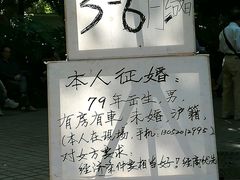 5-6
本人征婚：
79年出生，男，
有房有車，未婚，沪籍，
（本人在現場，手机：13052012995）
对女方要求：
经济条件要相当好，经商优先